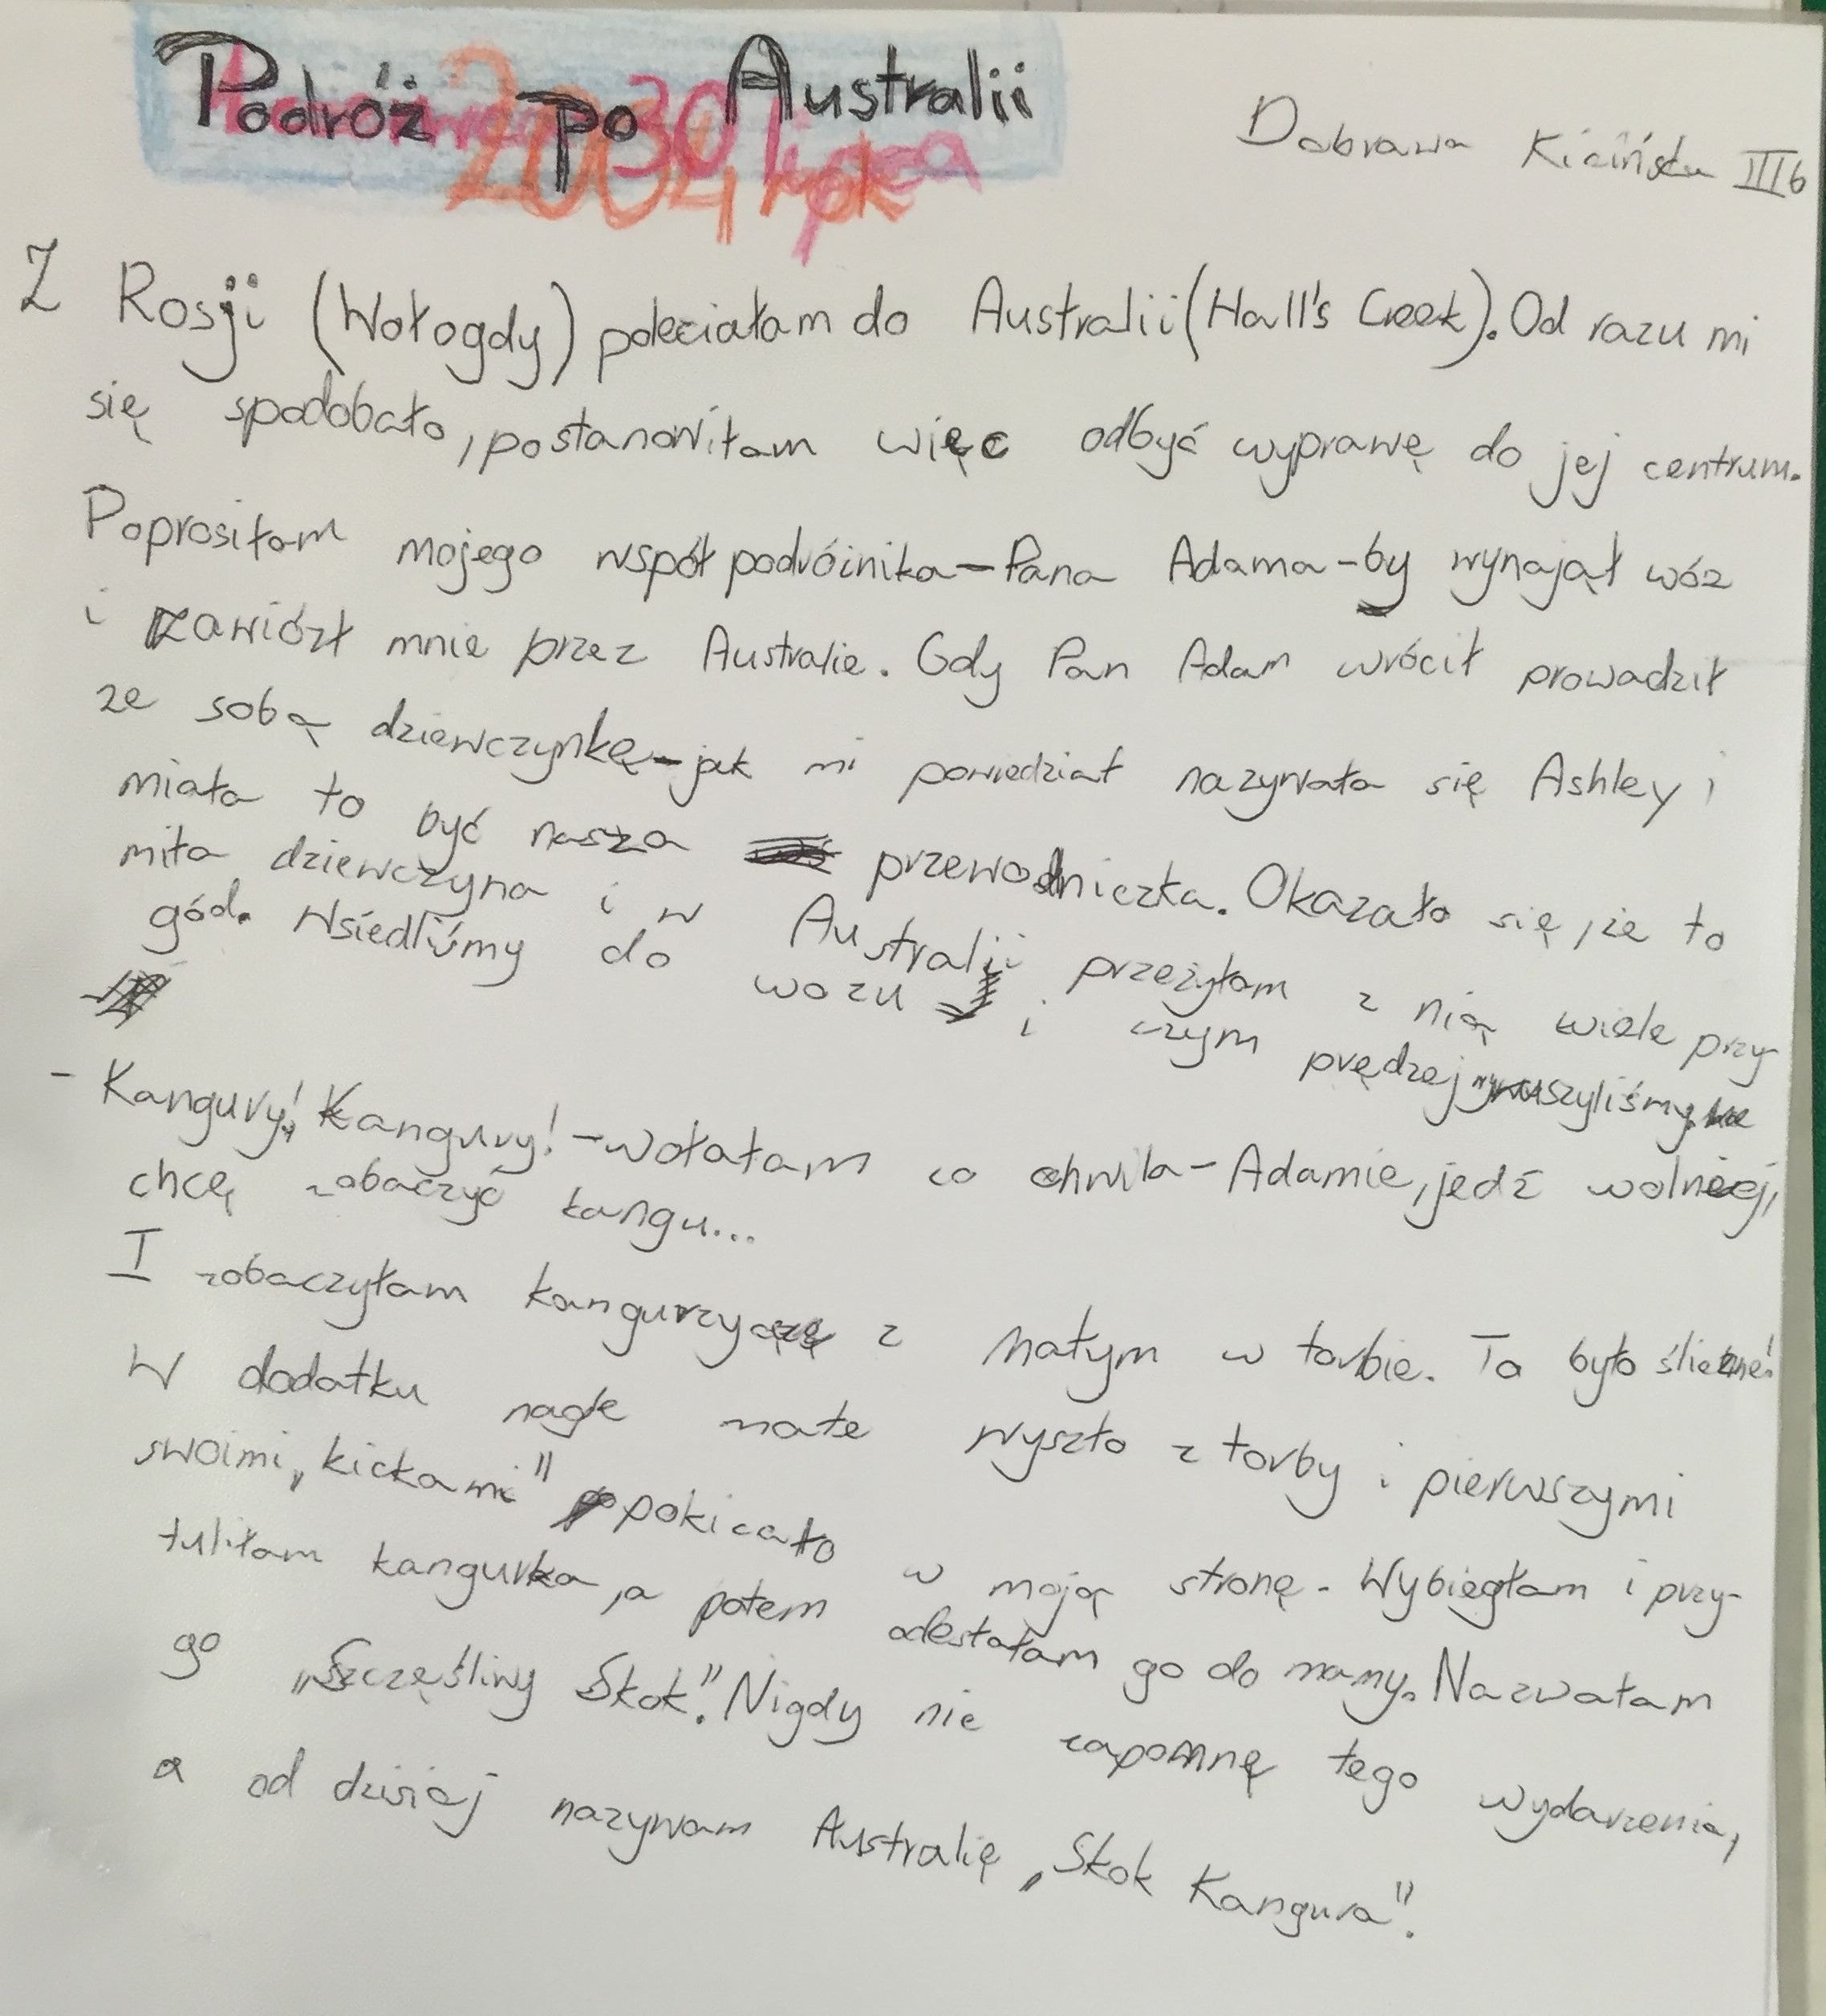 Podróż po Australii
30 lipca
2004 rok
Dobrawa Kicińska III b
Z Rosji (Wołogdy) poleciałam do Australii (Hall's Creek). Od razu mi
się spodobało, postanowiłam więc odbyć wyprawę do jej centrum.
Poprosiłam mojego współpodróżnika – Pana Adama – by wynajął wóz
i zawiózł mnie przez Australie. Gdy Pan Adam wrócił prowadził
ze sobą dziewczynkę – jak mi powiedział nazywała się Ashley i
miała to być nasza przewodniczka. Okazało się, że to
miła dziewczyna i w Australii przeżyłam z nią wiele przy-
gód. Wsiedliśmy do wozu i czym prędzej wyruszyliśmy.
- Kangury! Kangury! – wołałam co chwila – Adamie, jedź wolniej,
chcę zobaczyć kangu...
I zobaczyłam kangurzycę z małym w torbie. To było śliczne!
W dodatku nagle małe wyszło z torby i pierwszymi
swoimi „kickami" pokicało w moją stronę. Wybiegłam i przy-
tuliłam kangurka, a potem odesłałam go do mamy. Nazwałam
go „Szczęśliwy Skok". Nigdy nie zapomnę tego wydarzenia,
a od dzisiaj nazywam Australię „Skok Kangura".